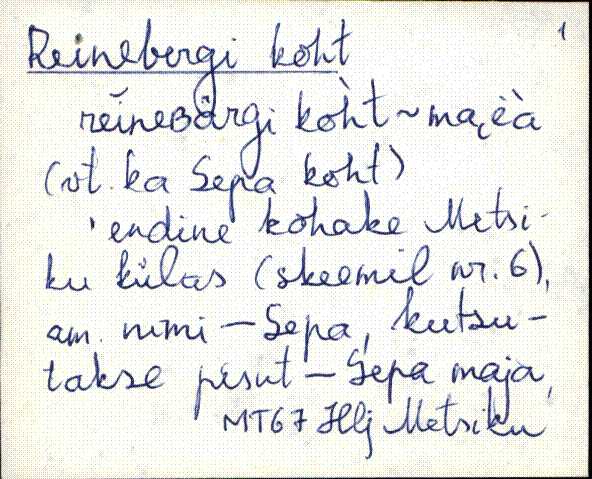 Reinebergi koht 1
rēinebärgi kòht ~
(vt. ka Sepa koht)
'endine kohake Metsi-
ku külas (skeemil nr. 6),
am. nimi – Sepa, kutsu-
takse pisut – Sepa maja,
MT67 Hlj Metsiku